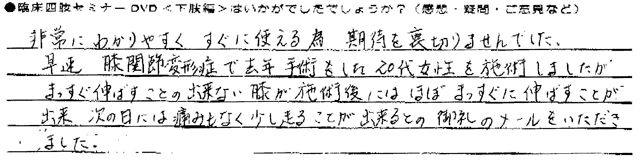 ●臨床四肢セミナーDVD＜下肢編＞はいかがでしたでしょうか？(感想・疑問・ご意見など)
非常にわかりやすく すぐに使える為 期待を裏切りませんでした。
早速 膝関節変形症で去年手術をした20代女性を施術しましたが
まっすぐ伸ばすことの出来ない膝が施術後には ほぼ まっすぐに伸ばすことが
出来、次の日には痛みもなく少し走ることが出来るとの 御礼のメールをいただき
ました。